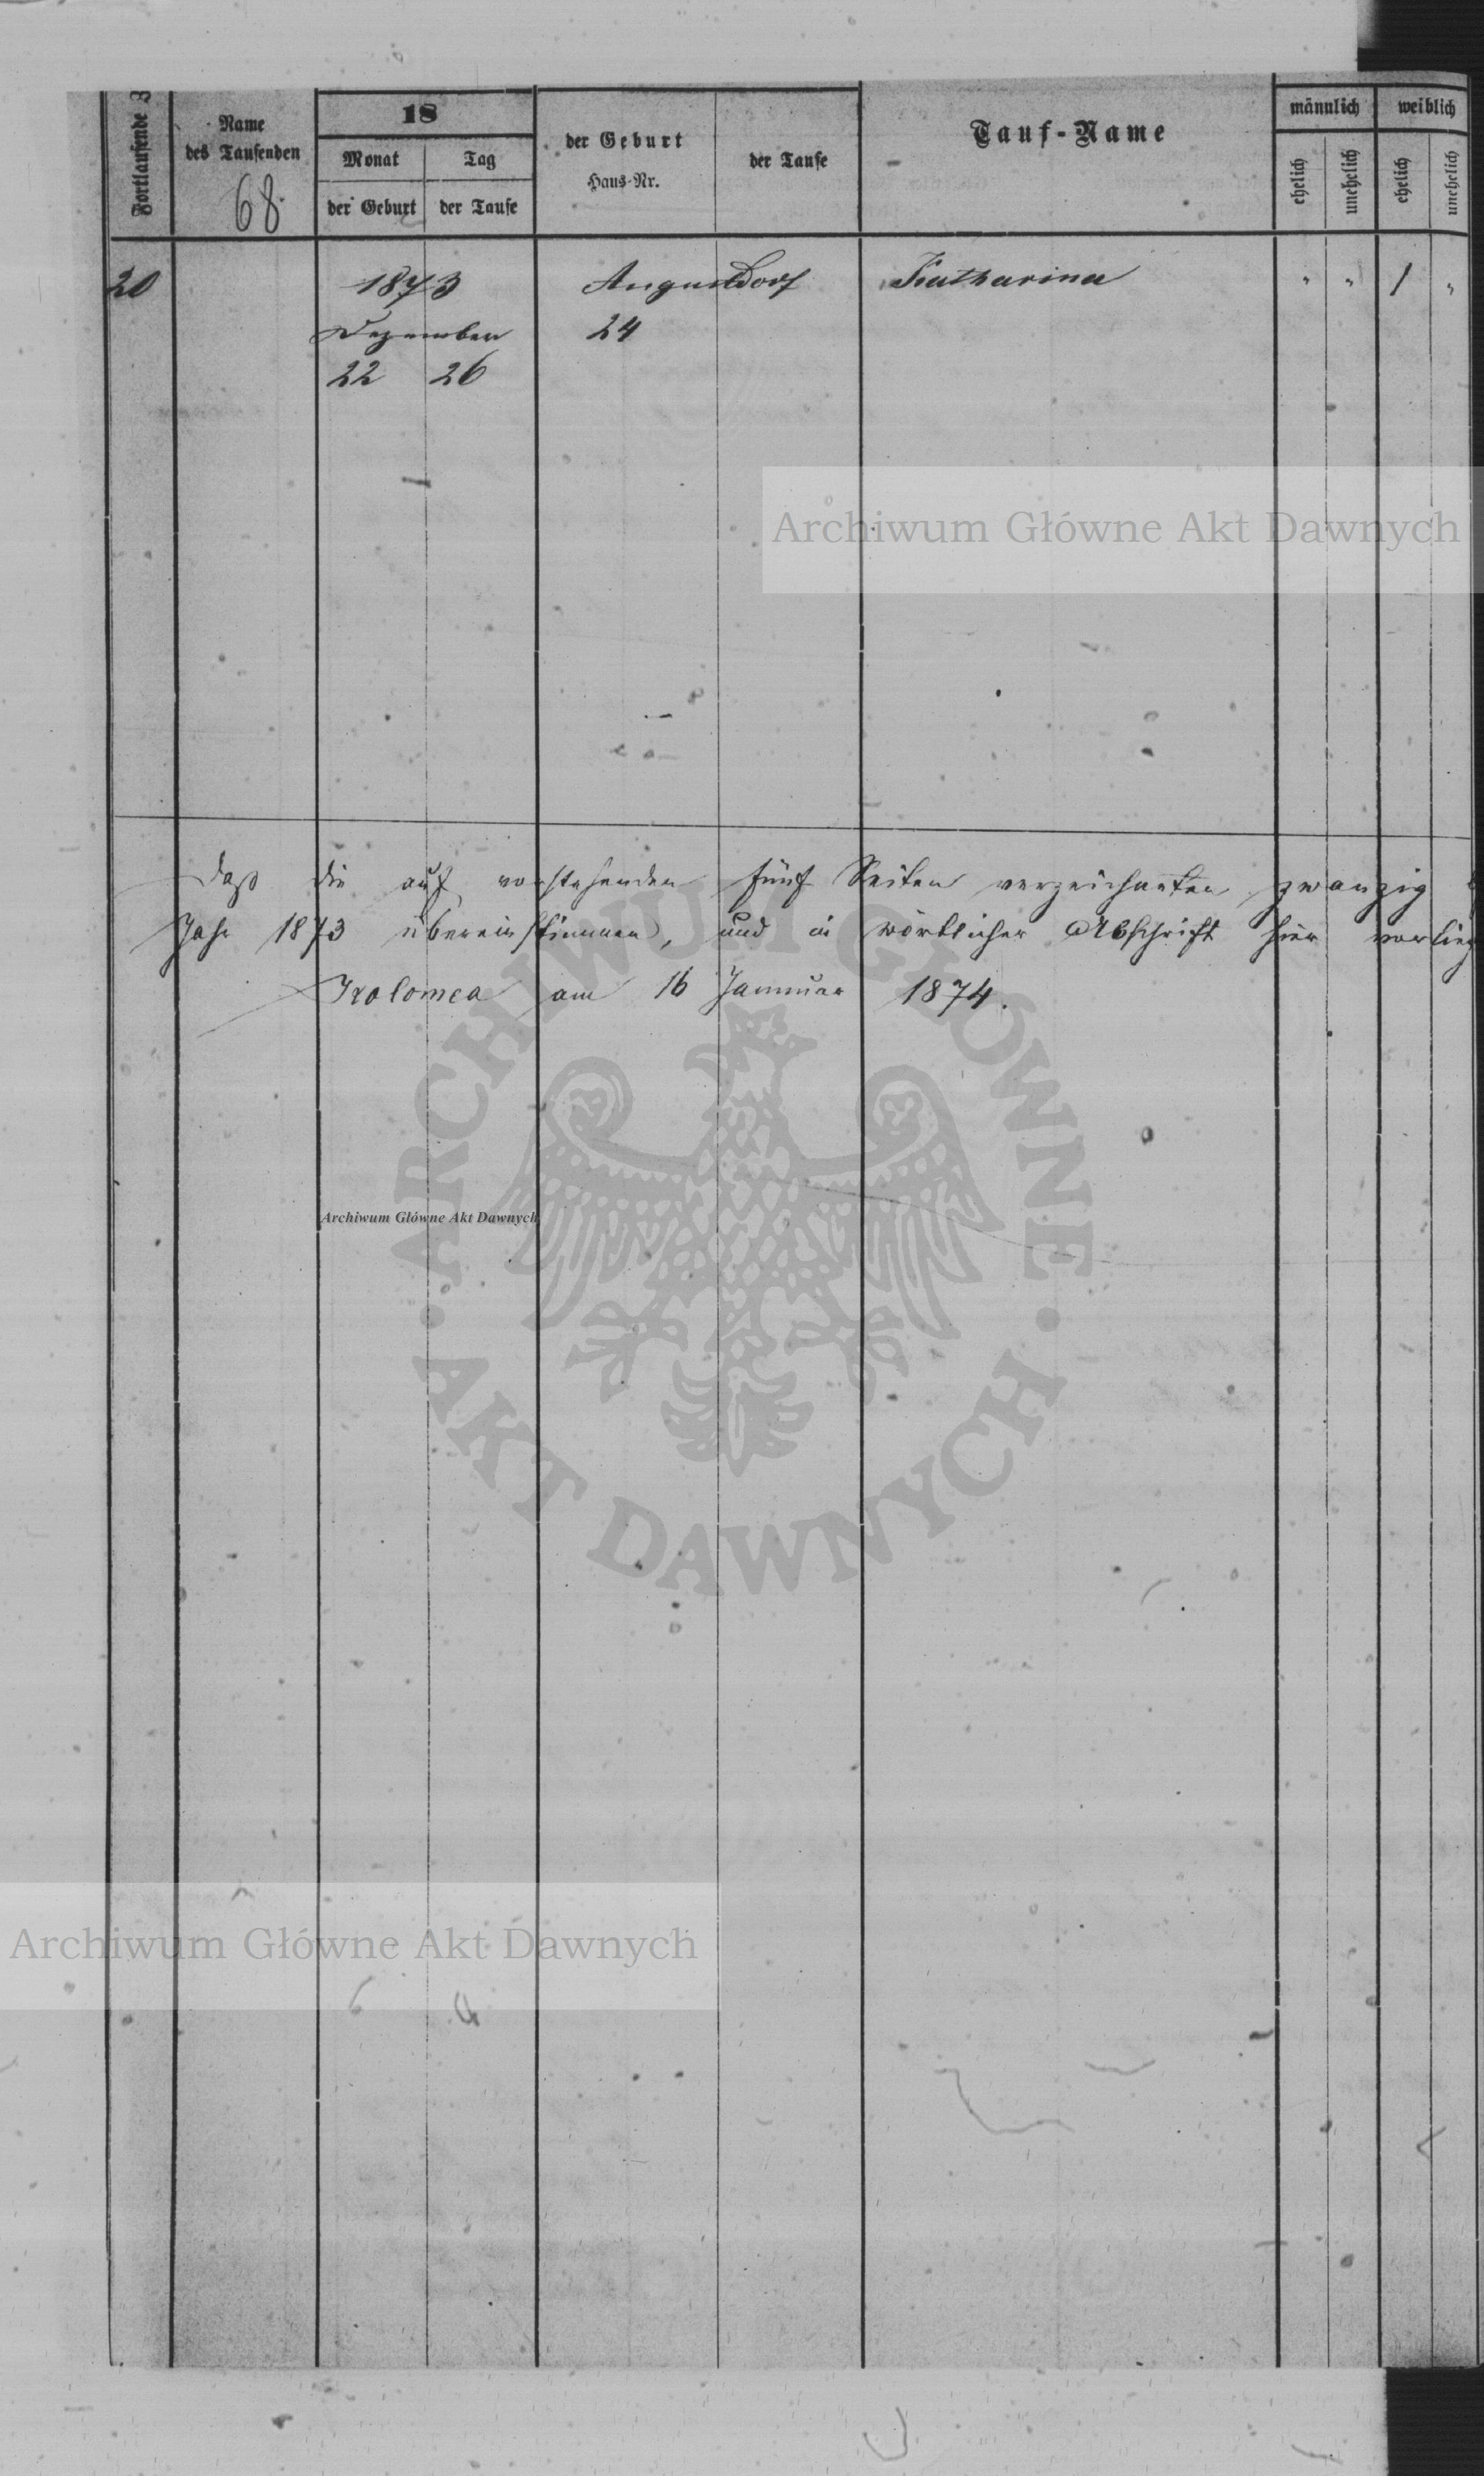 Fortlaufende Z
Name
des Taufenden
68.
18
Monat
Tag
der Geburt
der Taufe
der Geburt
Haus-Nr.
der Taufe
Tauf-Name
männlich
weiblich
ehelich
unehelich
ehelich
unehelich
20
1873
Augustdorf
Katharina
" " 1 "
Dezember
24
22 26
Archiwum Główne Akt Dawnych
Daß die auf vorstehenden fünf Seiten verzeichneten zwanzig
Jahr 1873 übereinstimmen, und in wörtlicher Abschrift hier vorlieg
Kolomea am 16 Januar 1874.
ARCHIWUM GŁÓWNE
Archiwum Główne Akt Dawnych
AKT DAWNYCH
Archiwum Główne Akt Dawnych